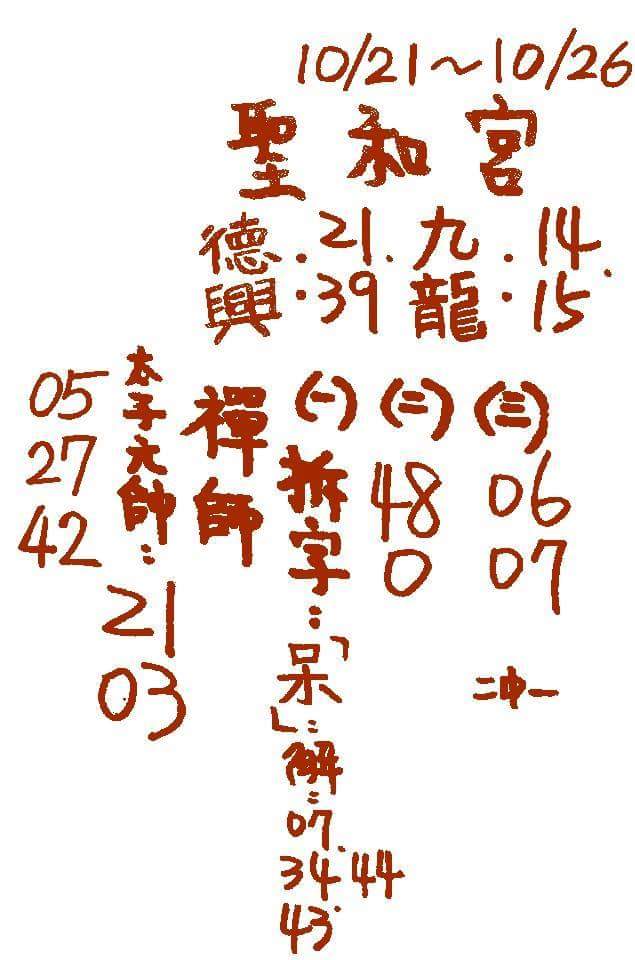 10/21～10/26
聖和宮
德興．21．39
九龍．14．15
(一)拆字：「呆」：解：07．34．44 43．
(二)48 0
(三)06 07
二中一
禪師
太子元帥：21 03
05 27 42